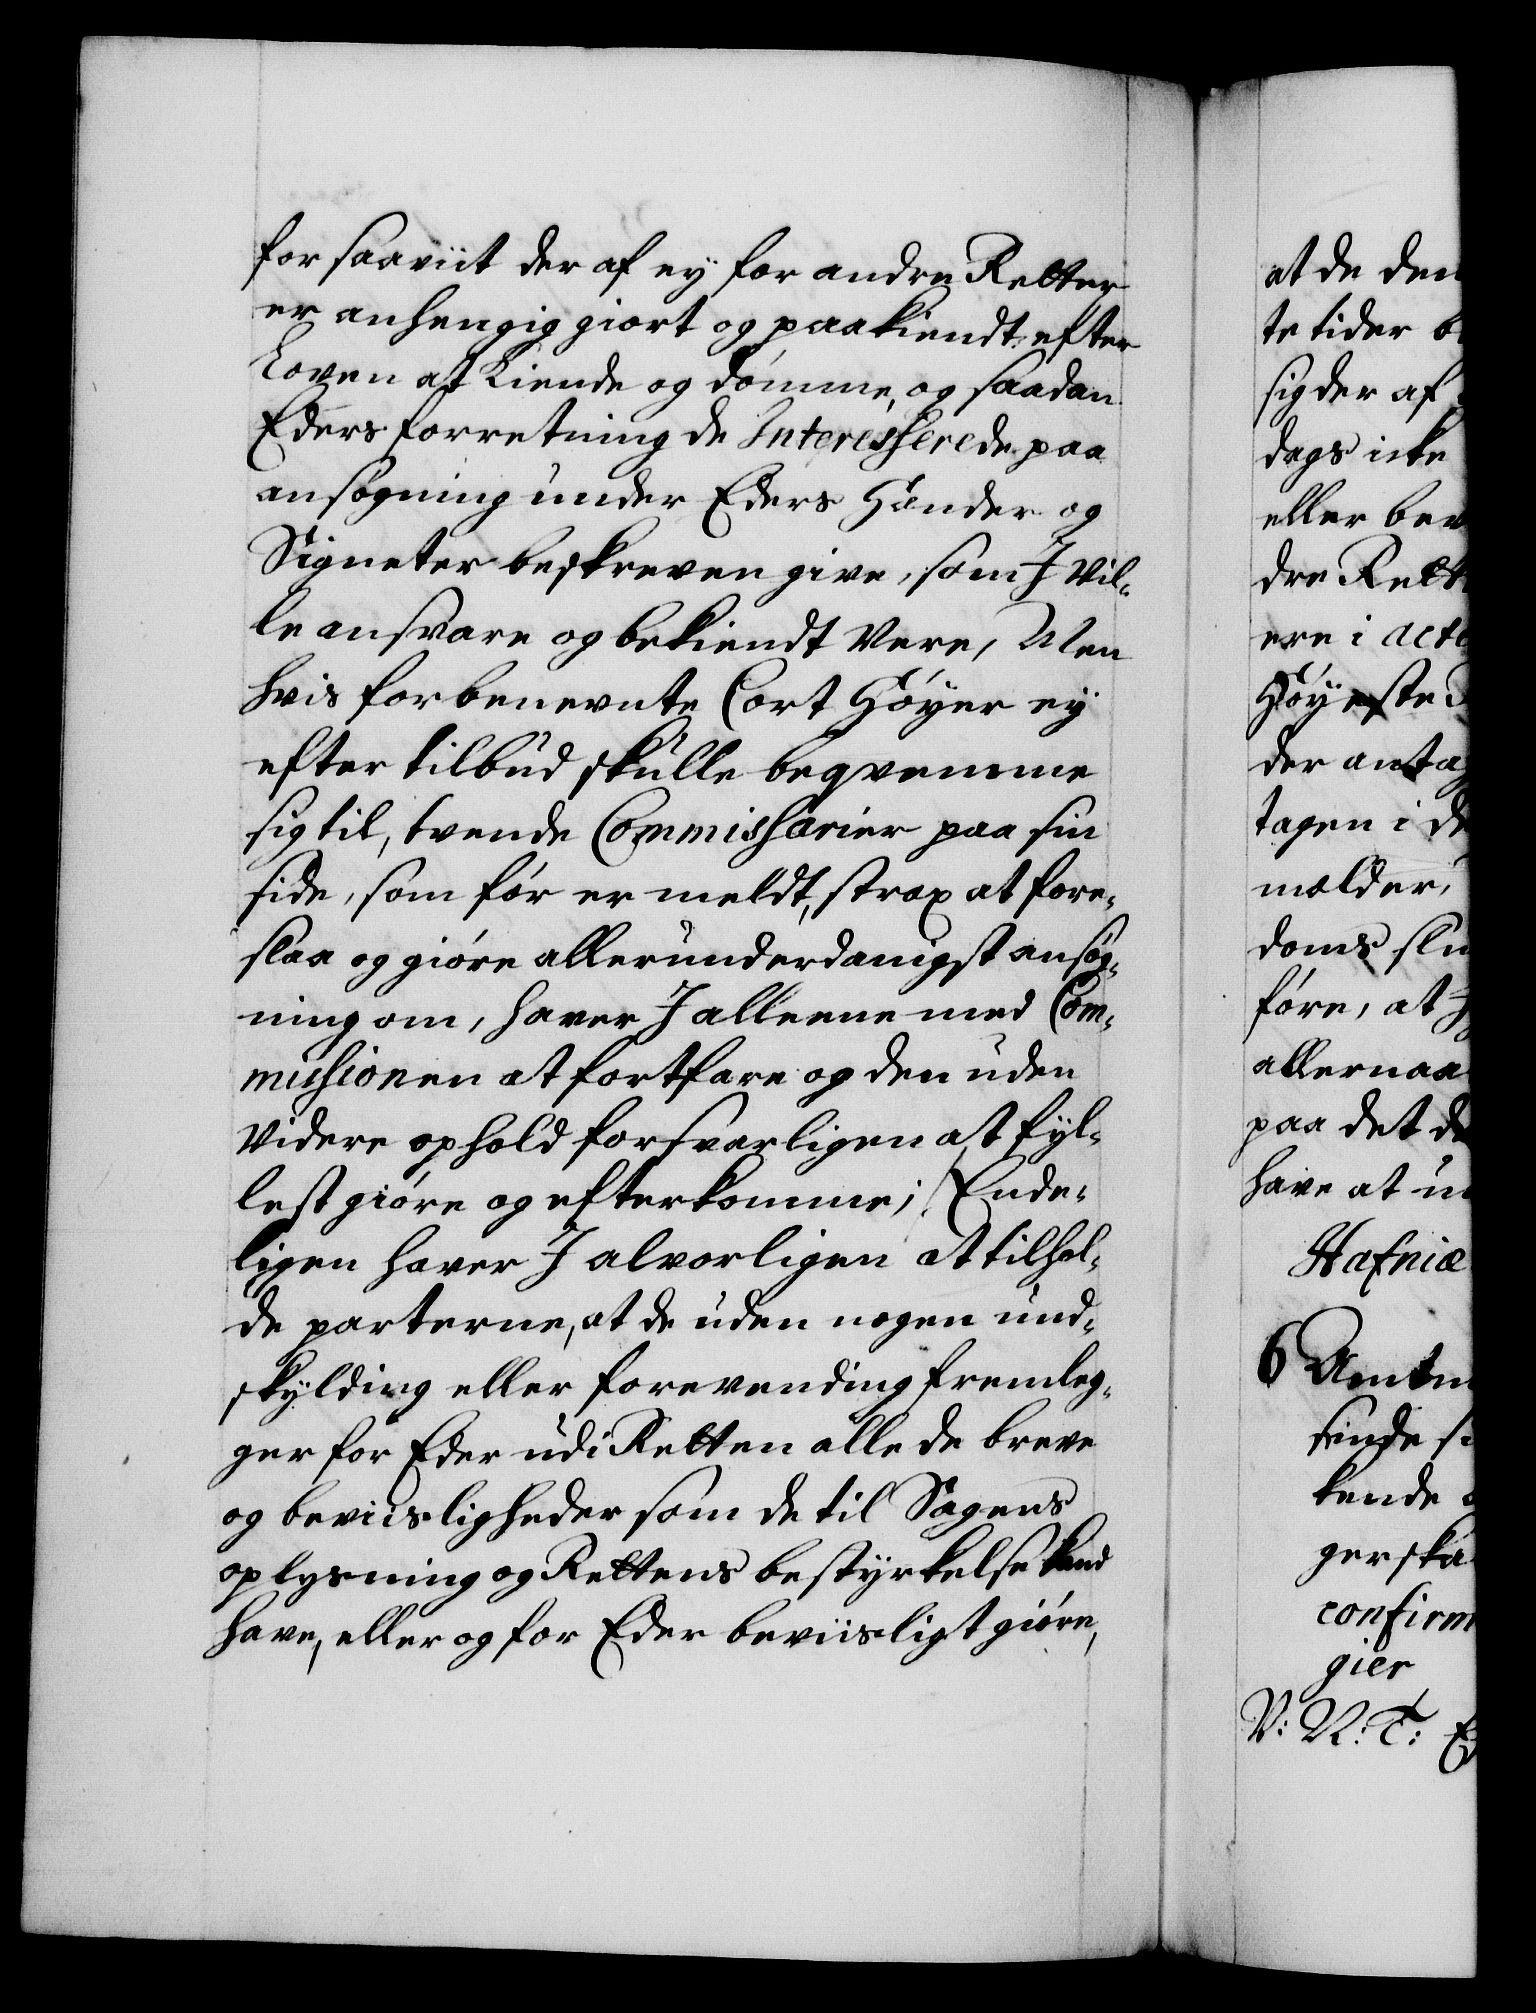 for saaviit der af ey for andre Retter
er anhengig giort og paakiendt, efter
Loven at Kiende og dømme, og saadan
Eders forretning de Interesserede paa
ansøgning under Eders Hænder og
Signeter beskreven give, som I vil-
le ansvare og bekiendt være, Men
hvis forbenevnte Cort Høyer ey
efter tilbud skulle beqvemme
sig til, tvende Commissarier paa sin
side, som før er meldt, strax at fore-
slaa og giøre allerunderdanigst ansøg-
ning om, haver I alleene med Com-
missionen at fortfare og den uden
videre ophold forsvarligen at fyl-
lestgiøre og efterkomme; Ende-
ligen haver I alvorligen at tilhol-
de parterne, at de uden nogen und-
skylding eller forevending fremleg-
ger for Eder udi Retten alle de breve
og beviisligheder som de til Sagens
oplysning og Rettens bestyrkelse kand
have, eller og for Eder beviisligt giøre,
at de den
te tider
sig der af
dags icke
eller
dre
ere i
Høyeste
der
tagen i
melder,
doms
føre, at
paa det
have at
Hafniæ
6
kende
gier
V: N: T: